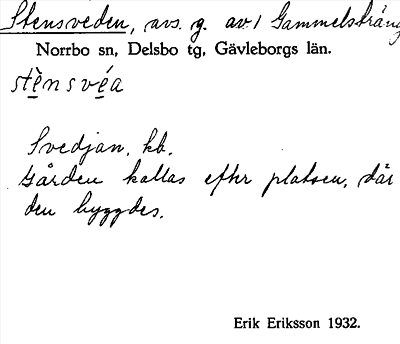 Stensveden, avs. g. av 1 Gammelsträng
Norrbo sn, Delsbo tg, Gävleborgs län.
stènsvéa
Svedjan, kb.
Gården kallas efter platsen, där
den byggdes.
Erik Eriksson 1932.